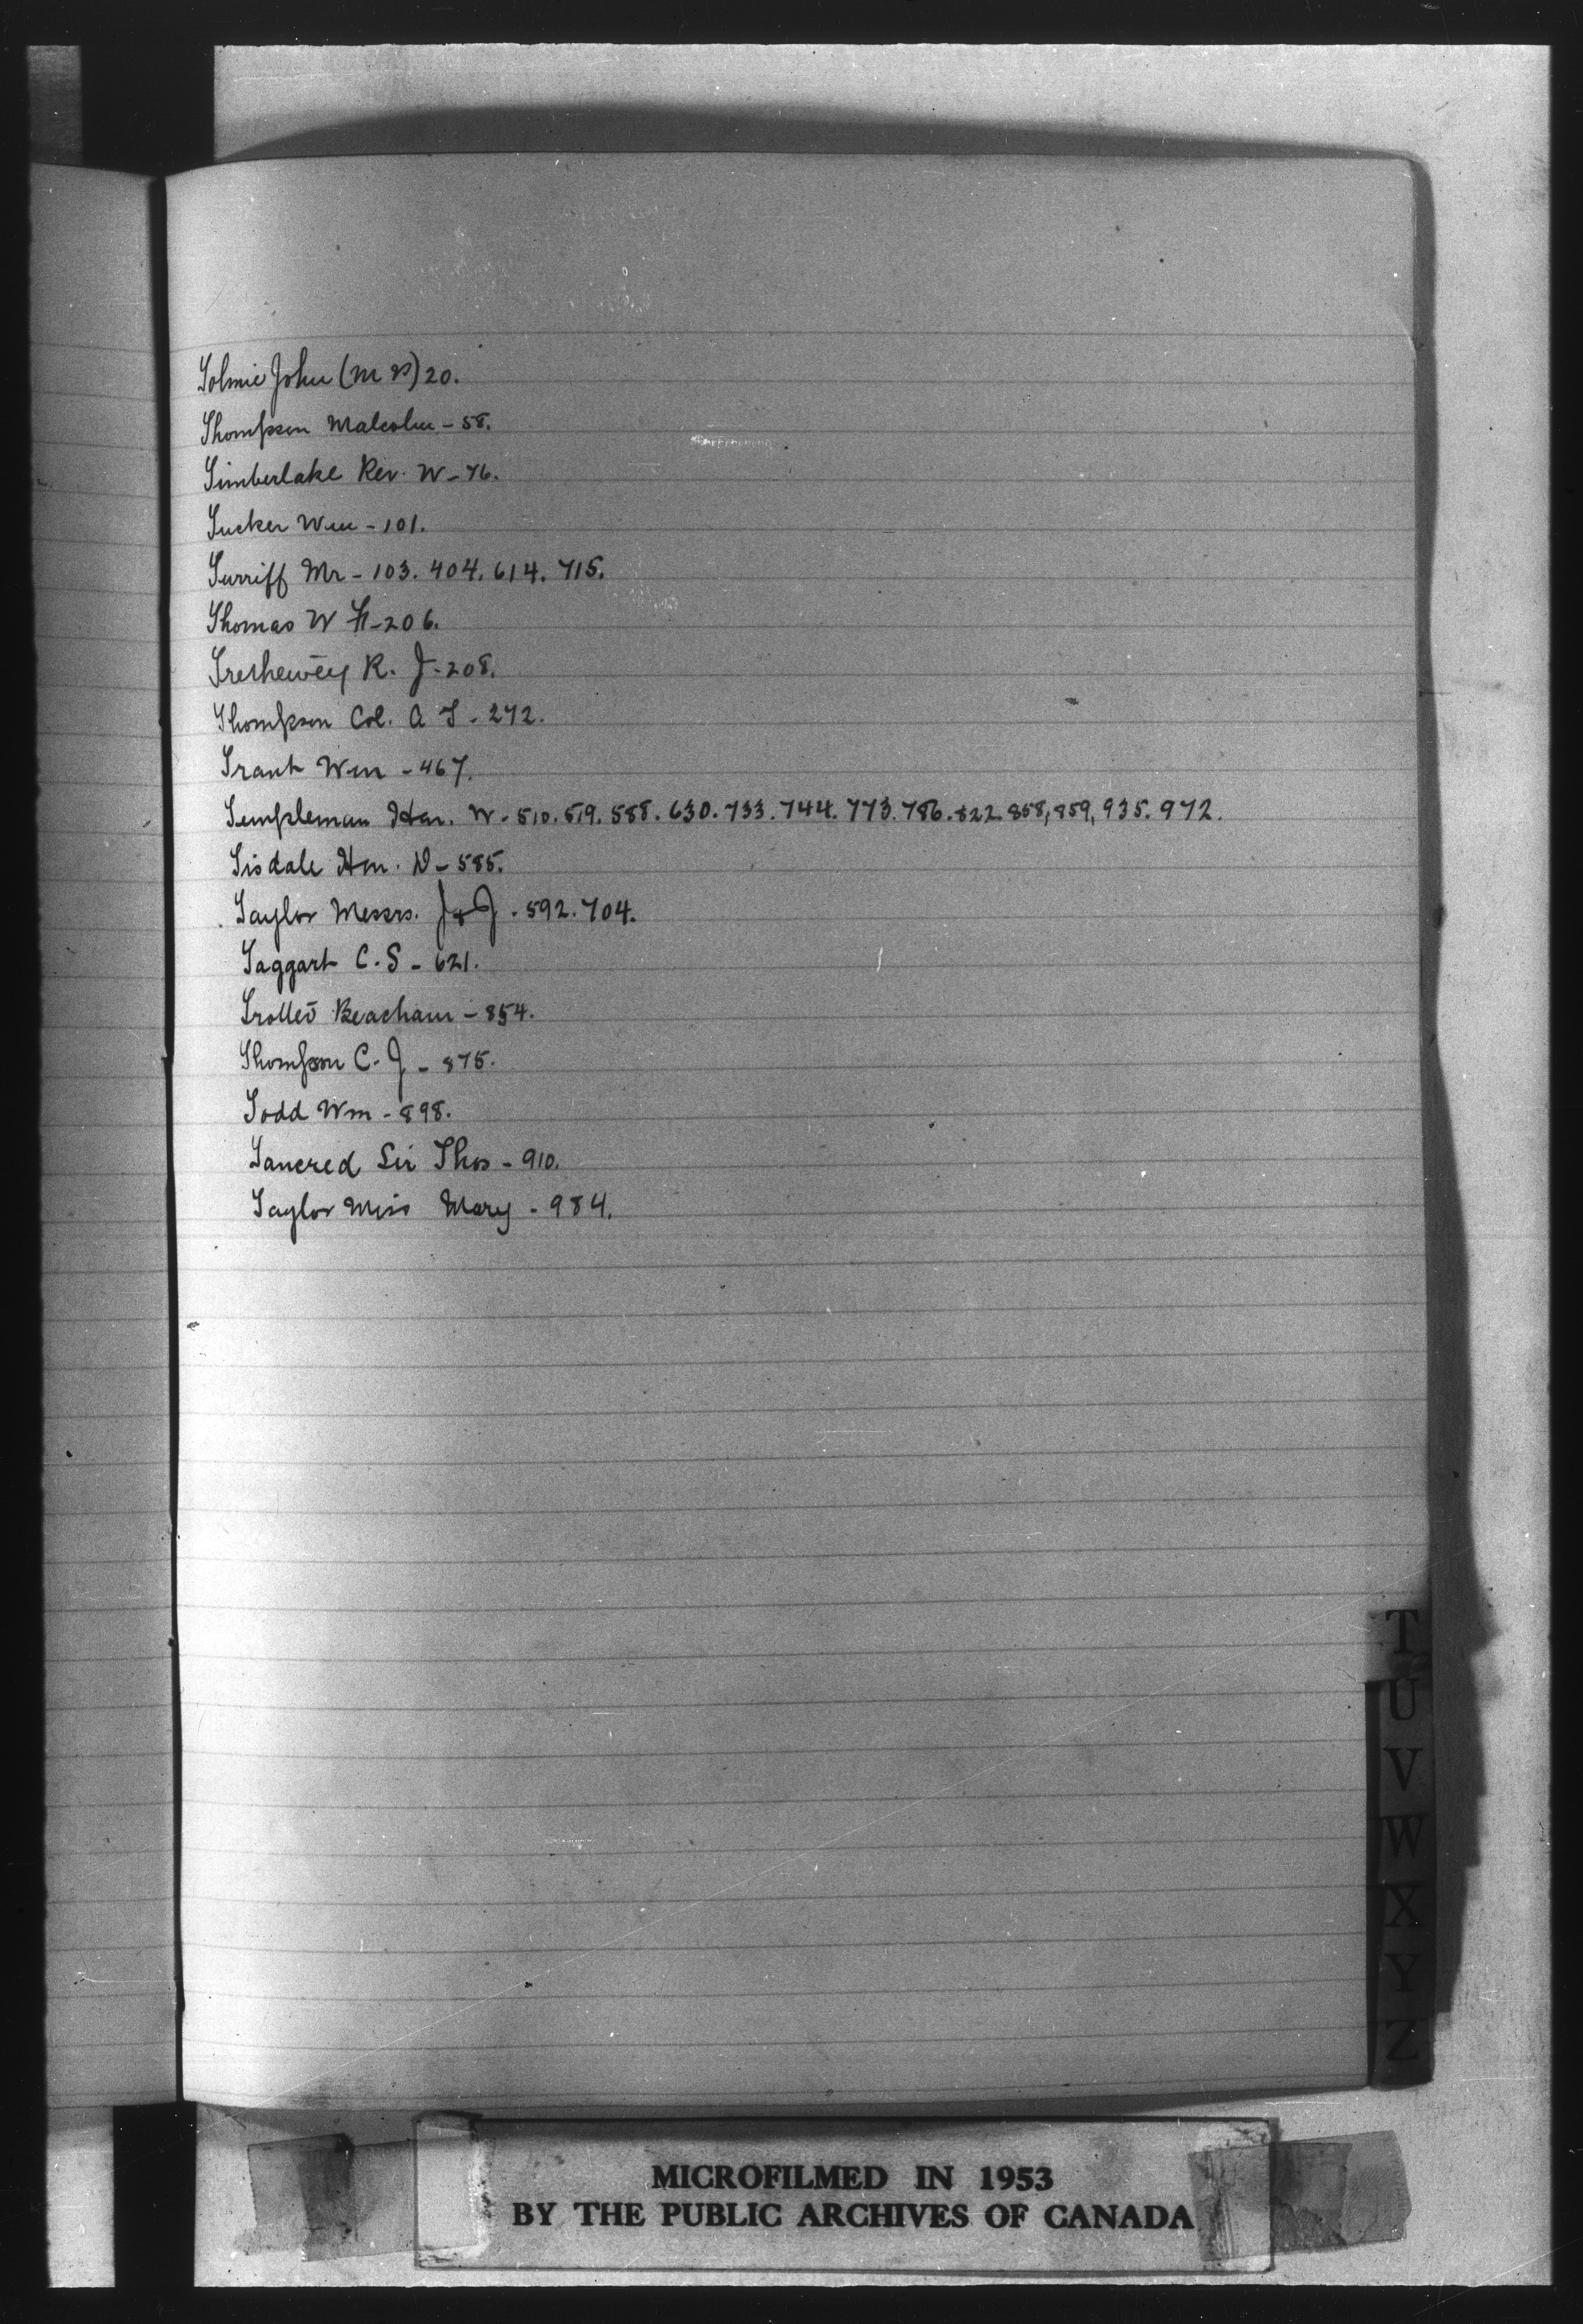 Tolmie John (M P) 20.
Thompson Malcolm - 58.
Timberlake Rev. W - 76.
Tucker Wm - 101.
Turriff Mr - 103. 404. 614. 715.
Thomas W H - 206.
Trethewey R. J - 208.
Thompson Col. A T - 272.
Trant Wm - 467.
Templeman Hon. W - 510. 519. 588. 630. 733. 744. 773. 786. 822. 858, 859, 935. 972.
Tisdale Hon. D - 585.
Taylor Messrs. J & J - 592. 704.
Taggart C. S - 621.
Trotter Beacham - 854.
Thompson C. J - 875.
Todd Wm - 898.
Tancred Sir Thos - 910.
Taylor Miss Mary - 984.
T
U
V
W
X
Y
Z
MICROFILMED IN 1953
BY THE PUBLIC ARCHIVES OF CANADA